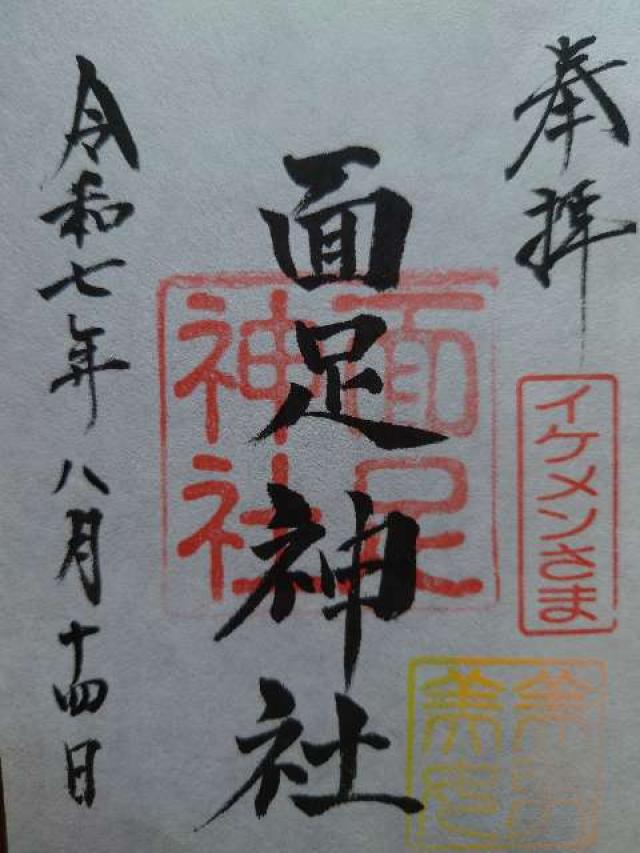 奉拝
イケメンさま
面足神社
面足
神社
令和七年八月十四日